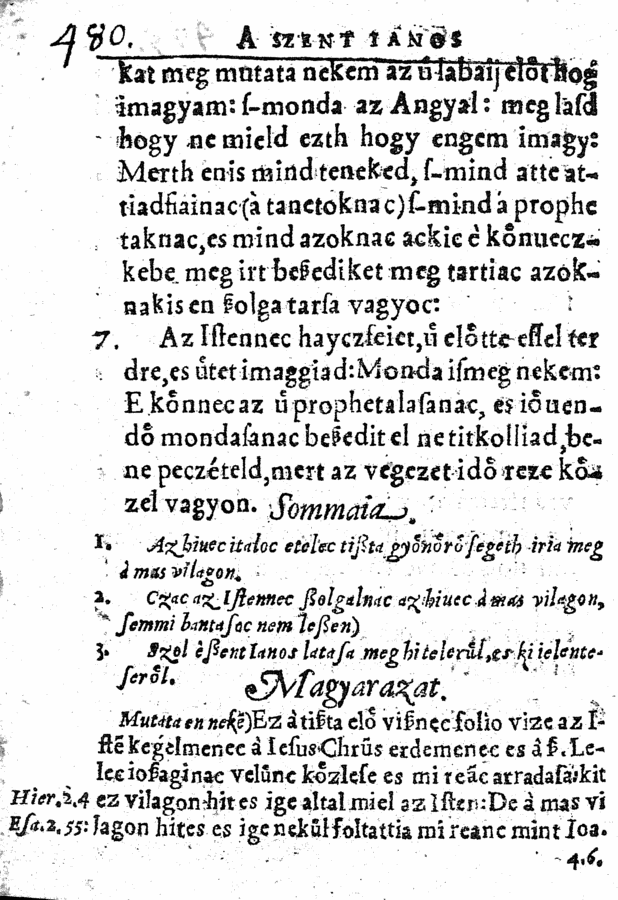 480. A SZENT IANOS
kat meg mutata nekem az ű labaij előt hog
imagyam: ſ-monda az Angyal: meg laſd
hogy ne mield ezth hogy engem imagy:
Merth enis mind teneked, ſ-mind atte at-
tiadfiainac (à tanetoknac) ſ-mind á prophe
taknac, es mind azoknac ackic è kőnuecz-
kebe meg irt beßediket meg tartiac azok-
nakis en ßolga tarſa vagyoc:
7. Az Iſtennec hayczſeiet, ű előtte eſſel ter
dre, es űtet imaggiad: Monda iſmeg nekem:
E kőnnec az ű prophetalaſanac, es iőuen-
dő mondaſanac beßedit el ne titkolliad, be-
ne peczételd, mert az vegezet idő reze kő-
zel vagyon. Sommaia.
1. Az hiuec italoc etelec tißta győnőrőſegeth iria meg
à mas vilagon.
2. Czac az Iſtennec ßolgalnac az hiuec à mas vilagon,
ſemmi bantaſoc nem leßen)
3. Szol è ßent Ianos lataſa meg hitelerűl, es ki ielente-
ſeről.
Magyarazat.
Mutata en nekē) Ez à tißta elő vißnec folio vize az I-
ſtē kegelmenec à Ieſus Chrūs erdemenec es à ß. Le-
lec ioßaginac velűnc kőzleſe es mi reāc arradaſa, kit
Hier. 2. 4 ez vilagon hit es ige altal miel az Iſten: De à mas vi
Eſa. 2. 55: lagon hites es ige nekűl foltattia mi reanc mint Ioa.
4. 6.